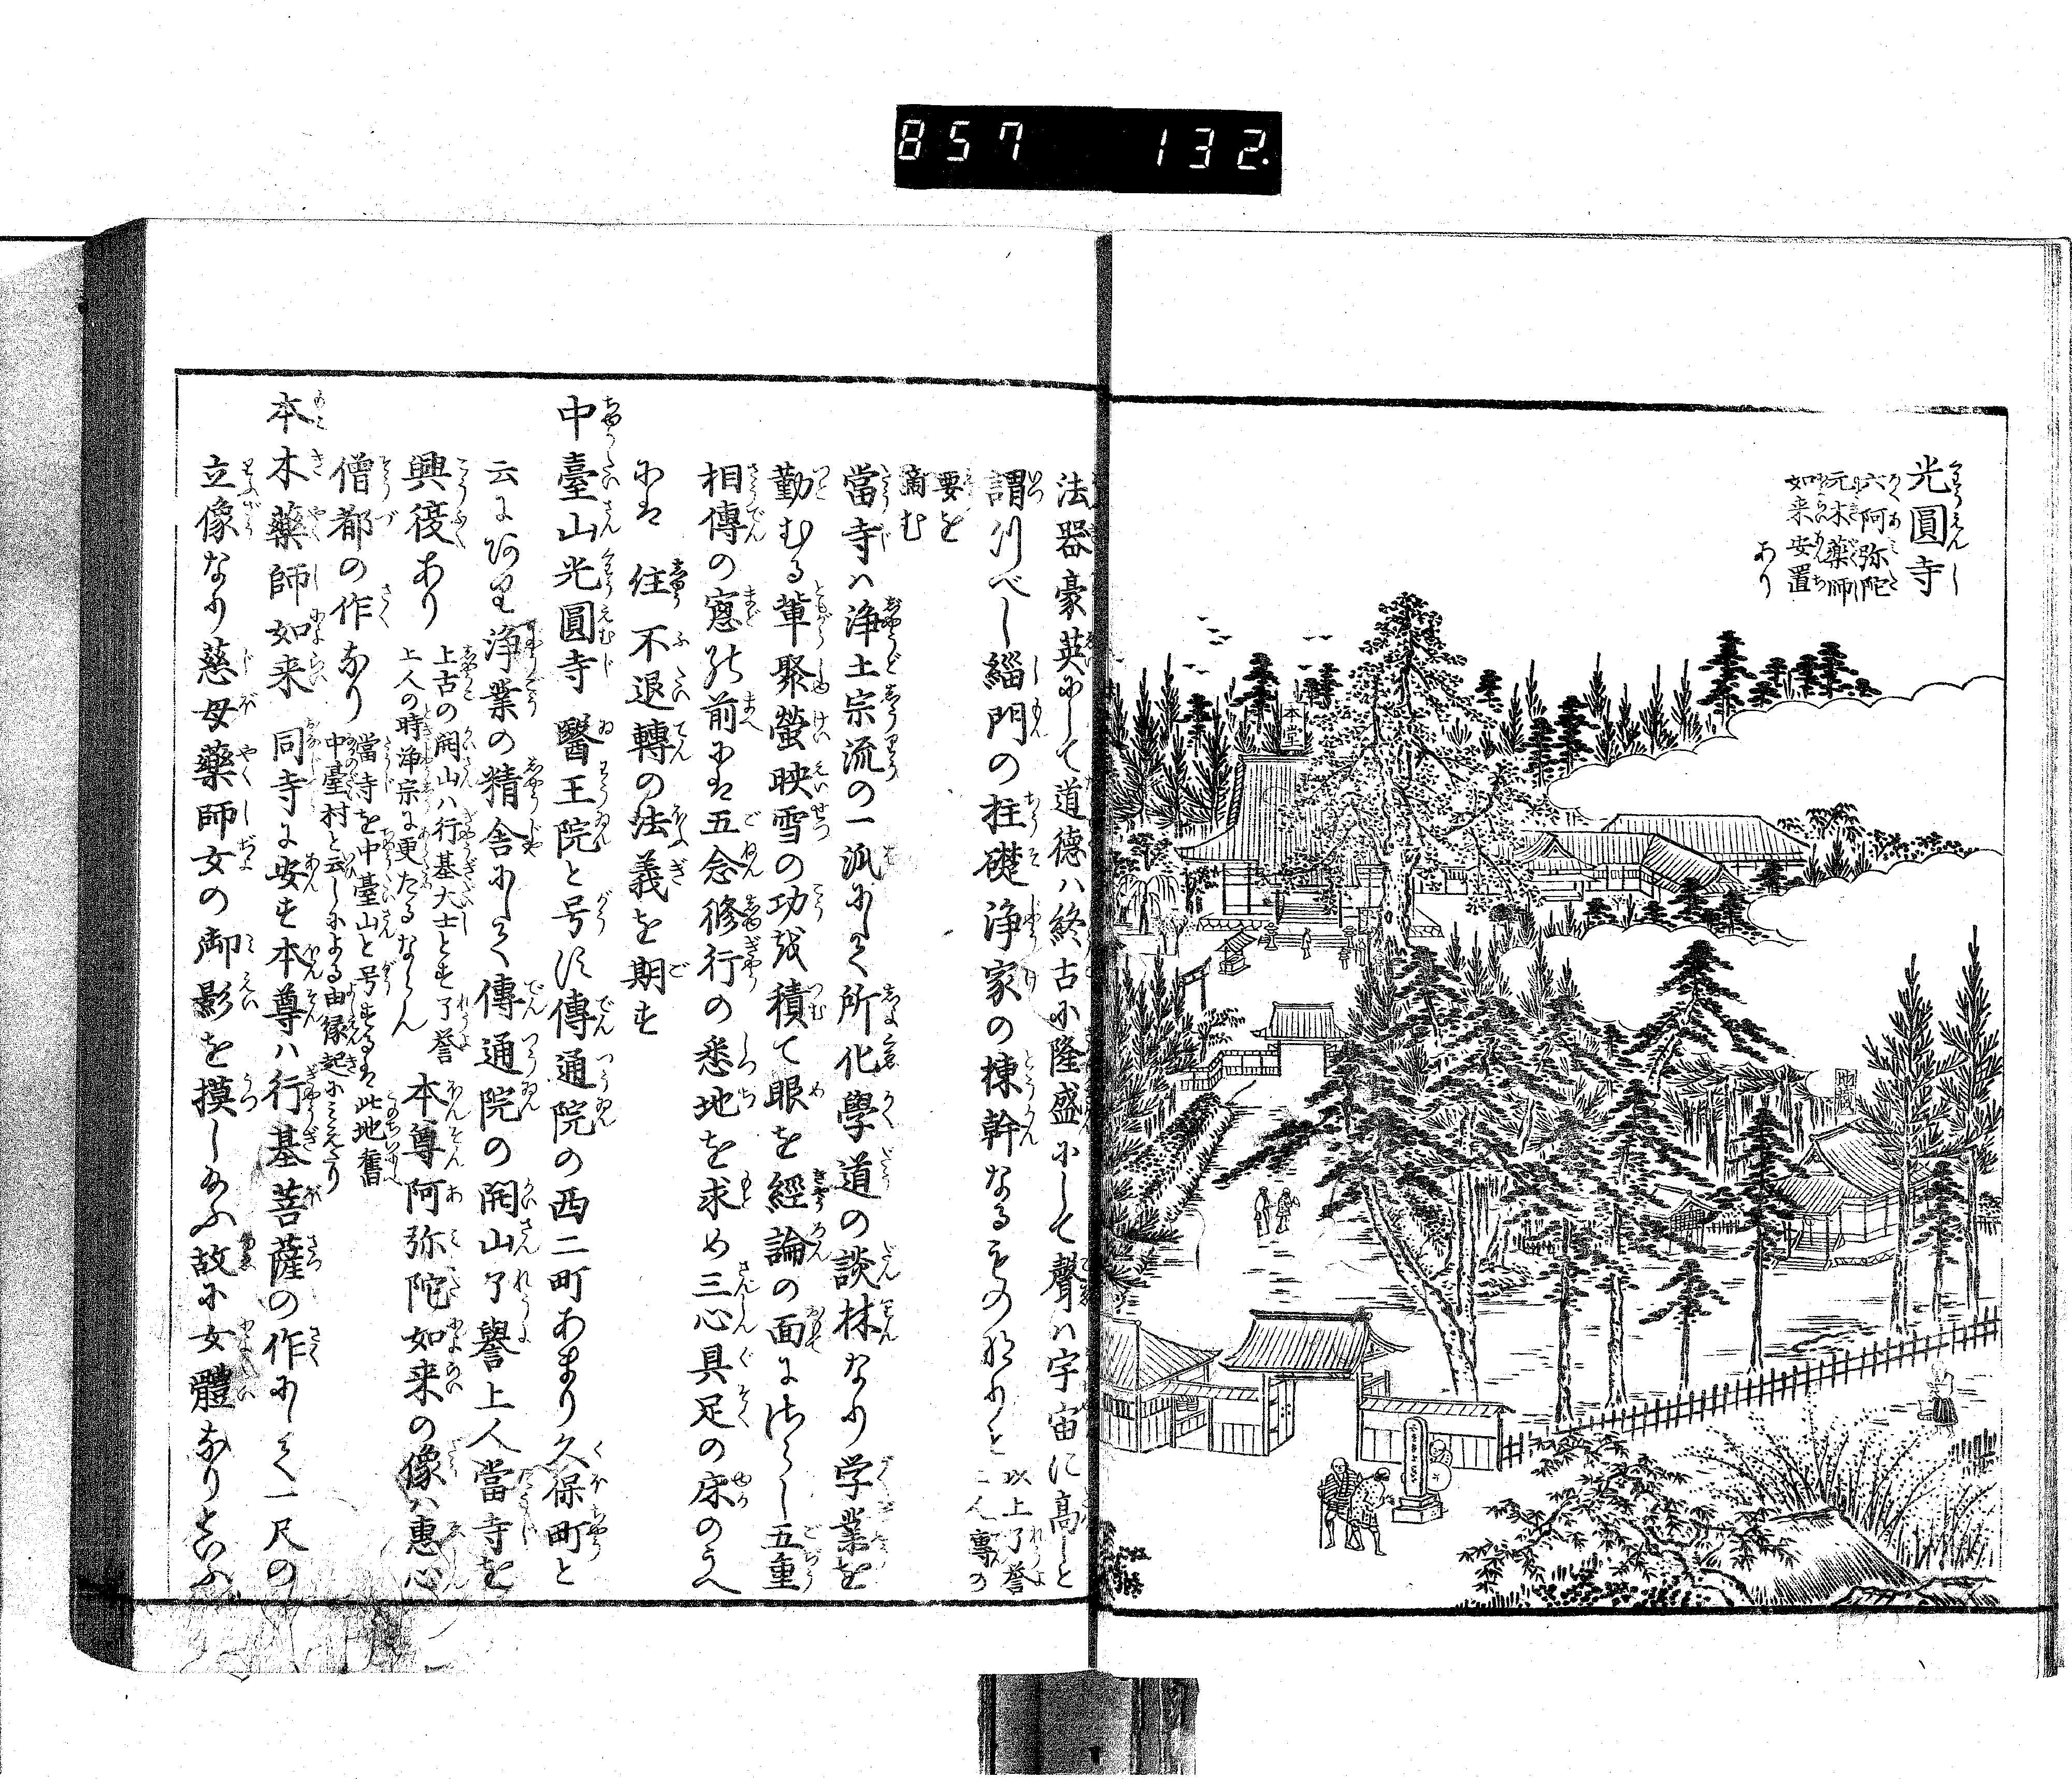 857 132.
光圓寺
六阿弥陀
元木薬師
如来安置
あり
本堂
法器豪英にして道徳ハ終古に隆盛にして聲ハ宇宙に高しと
謂つべし緇門の柱礎浄家の棟幹なるものなりと
以上了誉
上人傳の
要を
摘む
當寺ハ浄土宗流の一派にして所化學道の談林なり学業を
勤むる輩聚螢映雪の功を積て眼を經論の面にさらし五重
相傳の窓の前にハ五念修行の悉地を求め三心具足の床のうへ
にハ住不退轉の法義を期す
中臺山光圓寺 醫王院と号す傳通院の西二町あまり久保町と
云にあり浄業の精舎にして傳通院の開山了譽上人當寺を
興復あり
上古の開山ハ行基大士とす了誉
上人の時浄宗に更たるならん
本尊阿弥陀如来の像ハ惠心
僧都の作なり
當寺を中臺山と号するハ此地舊
中臺村と云しによる由縁起にみえたり
本木藥師如来 同寺に安す本尊ハ行基菩薩の作にして一尺の
立像なり慈母藥師女の御影を摸し給ふ故に女體なりといふ